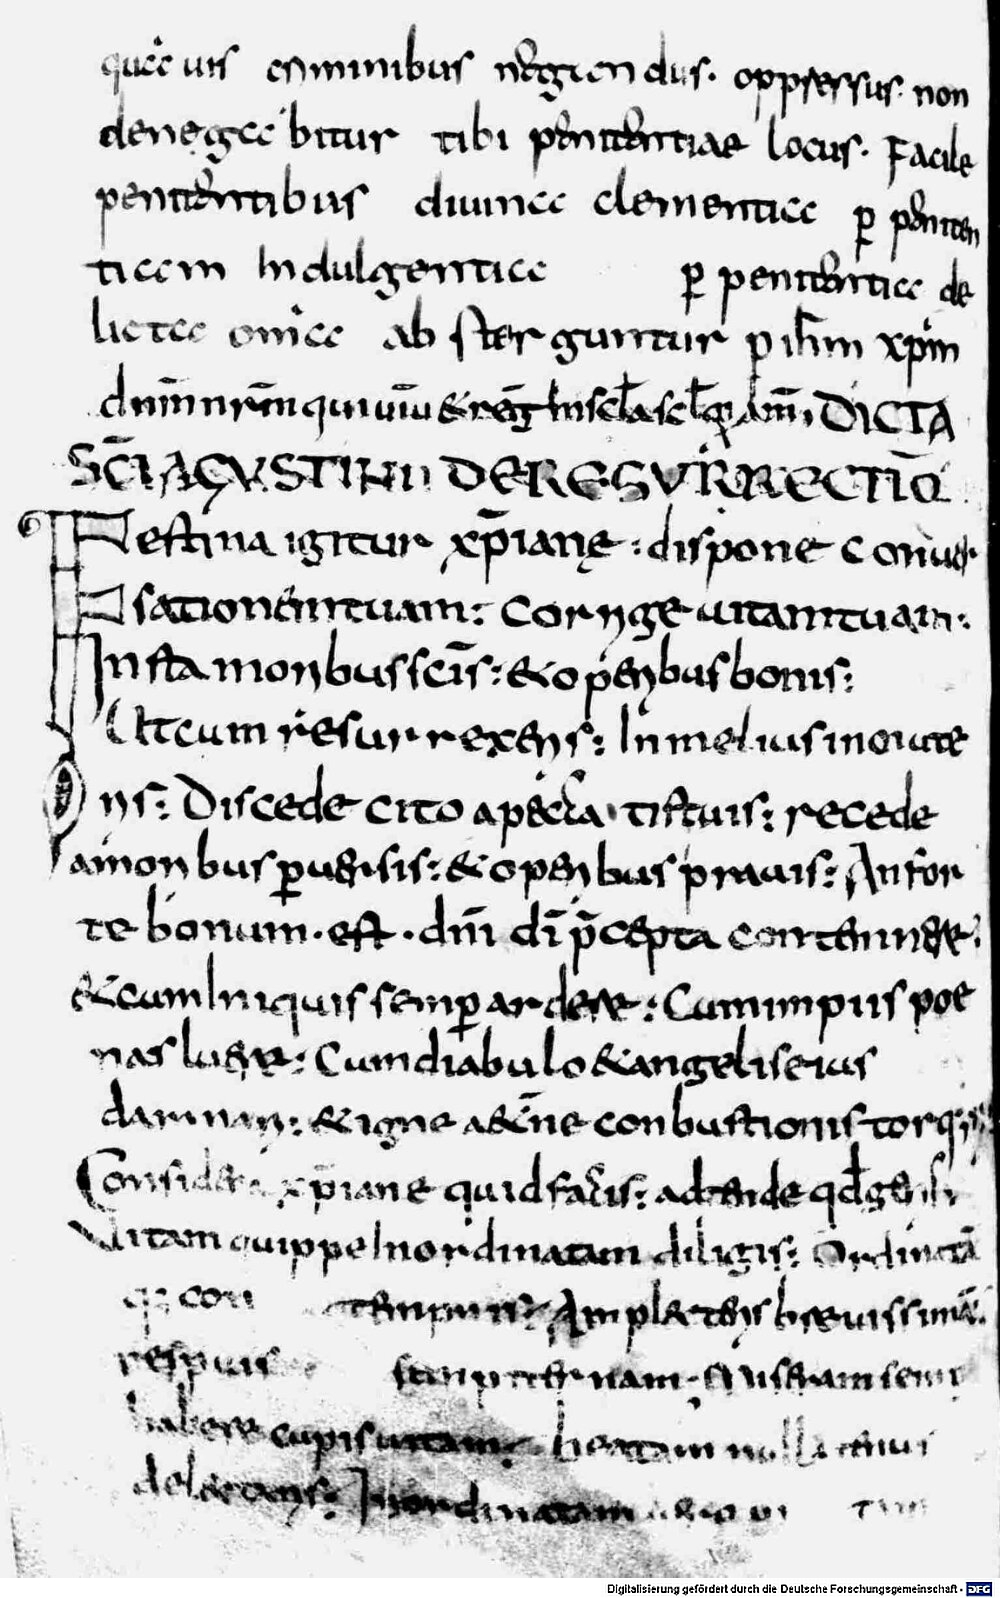 quauis criminibus nequiendus. oppressus. non
denegabitur tibi penitentiae locus. Facile
penitentibus diuina clementia p peniten
tiam Indulgentia p penitentia de
licta om̄a ab sterguntur p ih̄m xp̄m
dn̄m nr̄m qui uiu& reg̅ In scl̄a scl̄oꝝ am̄. DICTA
SC̄I AGVSTINI DE RESVRRECTIO̅
Festina igitur xp̄iane: dispone conuer
sationem tuam: Corrige uitam tuam:
Insta moribus sc̄is: & operibus bonis:
Ut cum resurrexeris: In melius inoute
ris: Discede cito a pecca tis tuis: recede
a moribus ꝑuersis: & operibus prauis: An for
te bonum. est. dn̄i dī p̄cepta contemnere:
& cum Iniquis semꝑ ardere: Cum impiis poe
nas luere: Cum diabulo & angelis eius
damnari: & igne aet̄ne conbustionis torq
Considera xp̄iane quid facis: adtende qd geris
Uitam quippe Inordinatam diligis: Ordinatā
q; con tempnis: Amplecteris breuissimā
respuis sempiternam. Miseram semp
habere cupis uitam: beatam nulla tenus
delectaris: Inordinatam